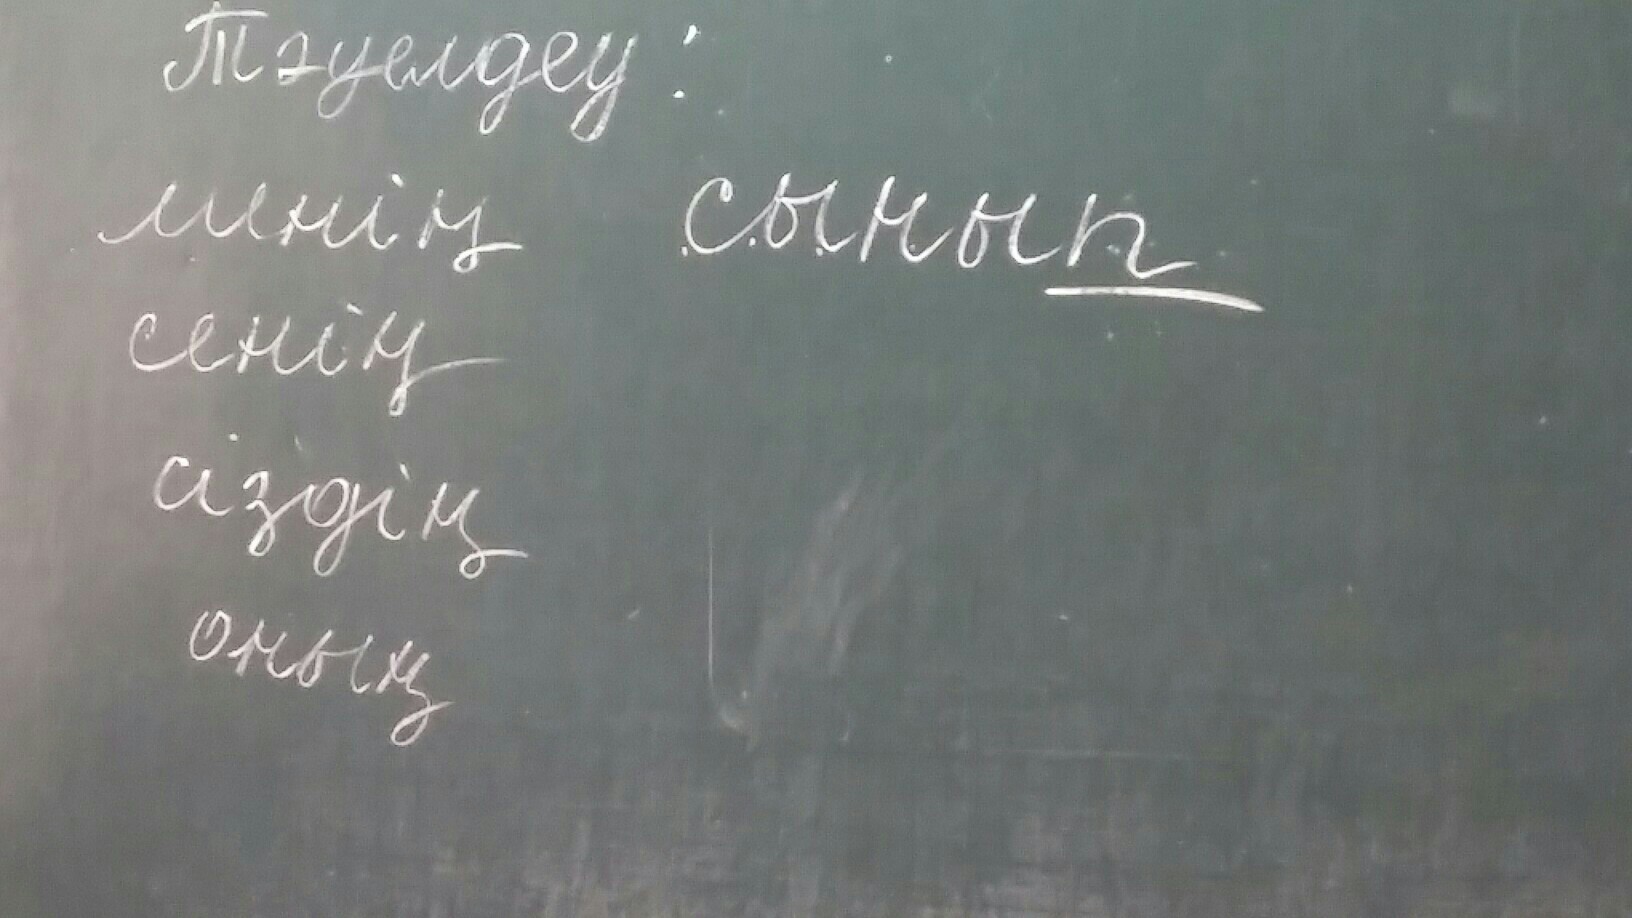 Тәуелдеу:
менің сынып
сенің
сіздің
оның